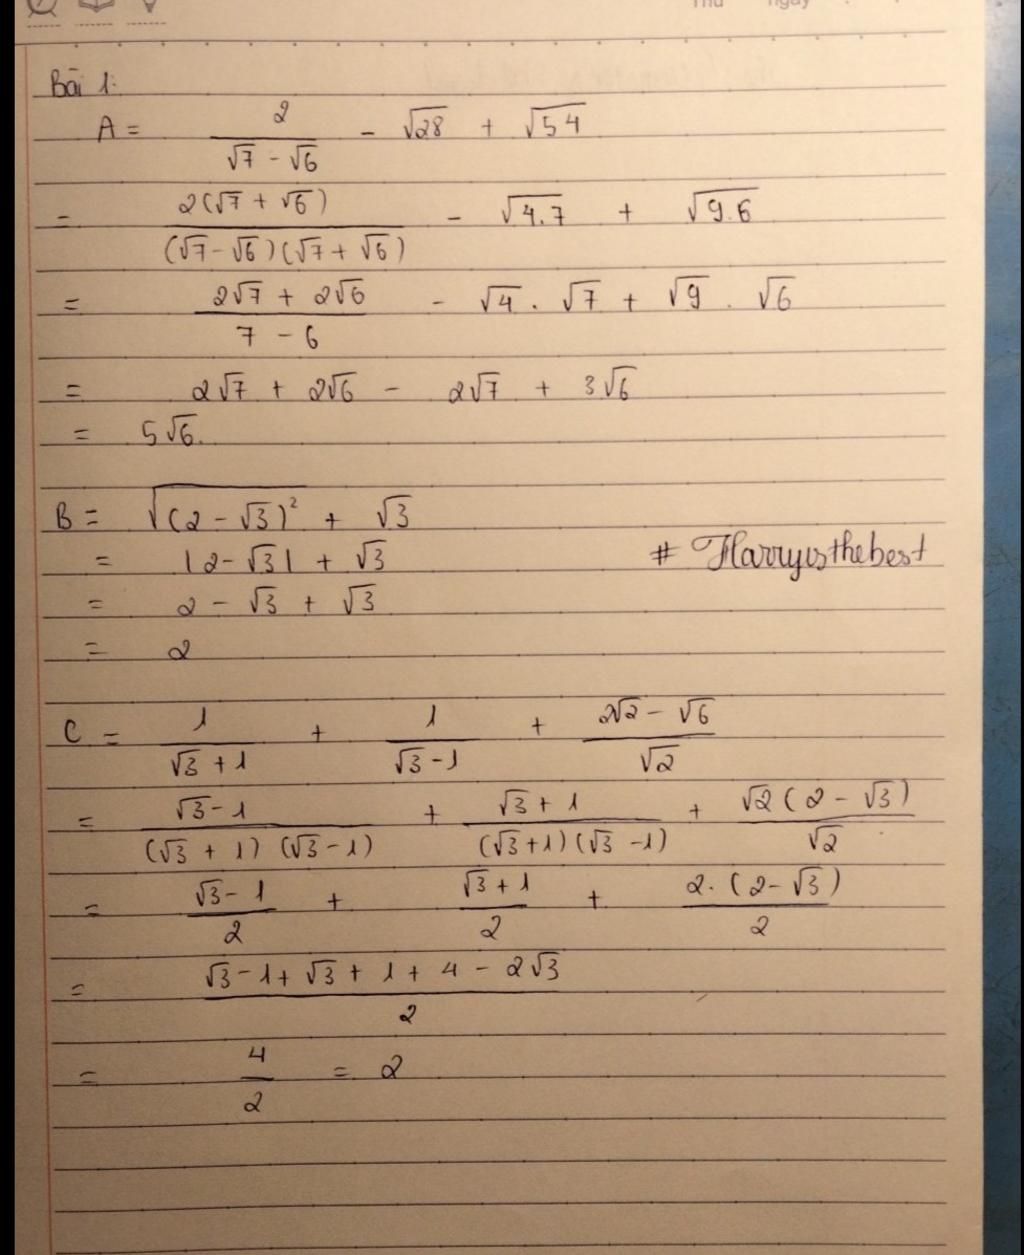 Thứ ngày
Bài 1:
A = 2/(√7 - √6) - √28 + √54
= 2(√7 + √6)/((√7 - √6)(√7 + √6)) - √4.7 + √9.6
= (2√7 + 2√6)/(7 - 6) - √4 . √7 + √9 . √6
= 2√7 + 2√6 - 2√7 + 3√6
= 5√6.
B = √(2 - √3)² + √3
= |2 - √3| + √3
# Harryisthebest
= 2 - √3 + √3
= 2
C = 1/(√3 + 1) + 1/(√3 - 1) + (2√2 - √6)/√2
= (√3 - 1)/((√3 + 1)(√3 - 1)) + (√3 + 1)/((√3 + 1)(√3 - 1)) + √2(2 - √3)/√2
= (√3 - 1)/2 + (√3 + 1)/2 + 2.(2 - √3)/2
= (√3 - 1 + √3 + 1 + 4 - 2√3)/2
= 4/2 = 2